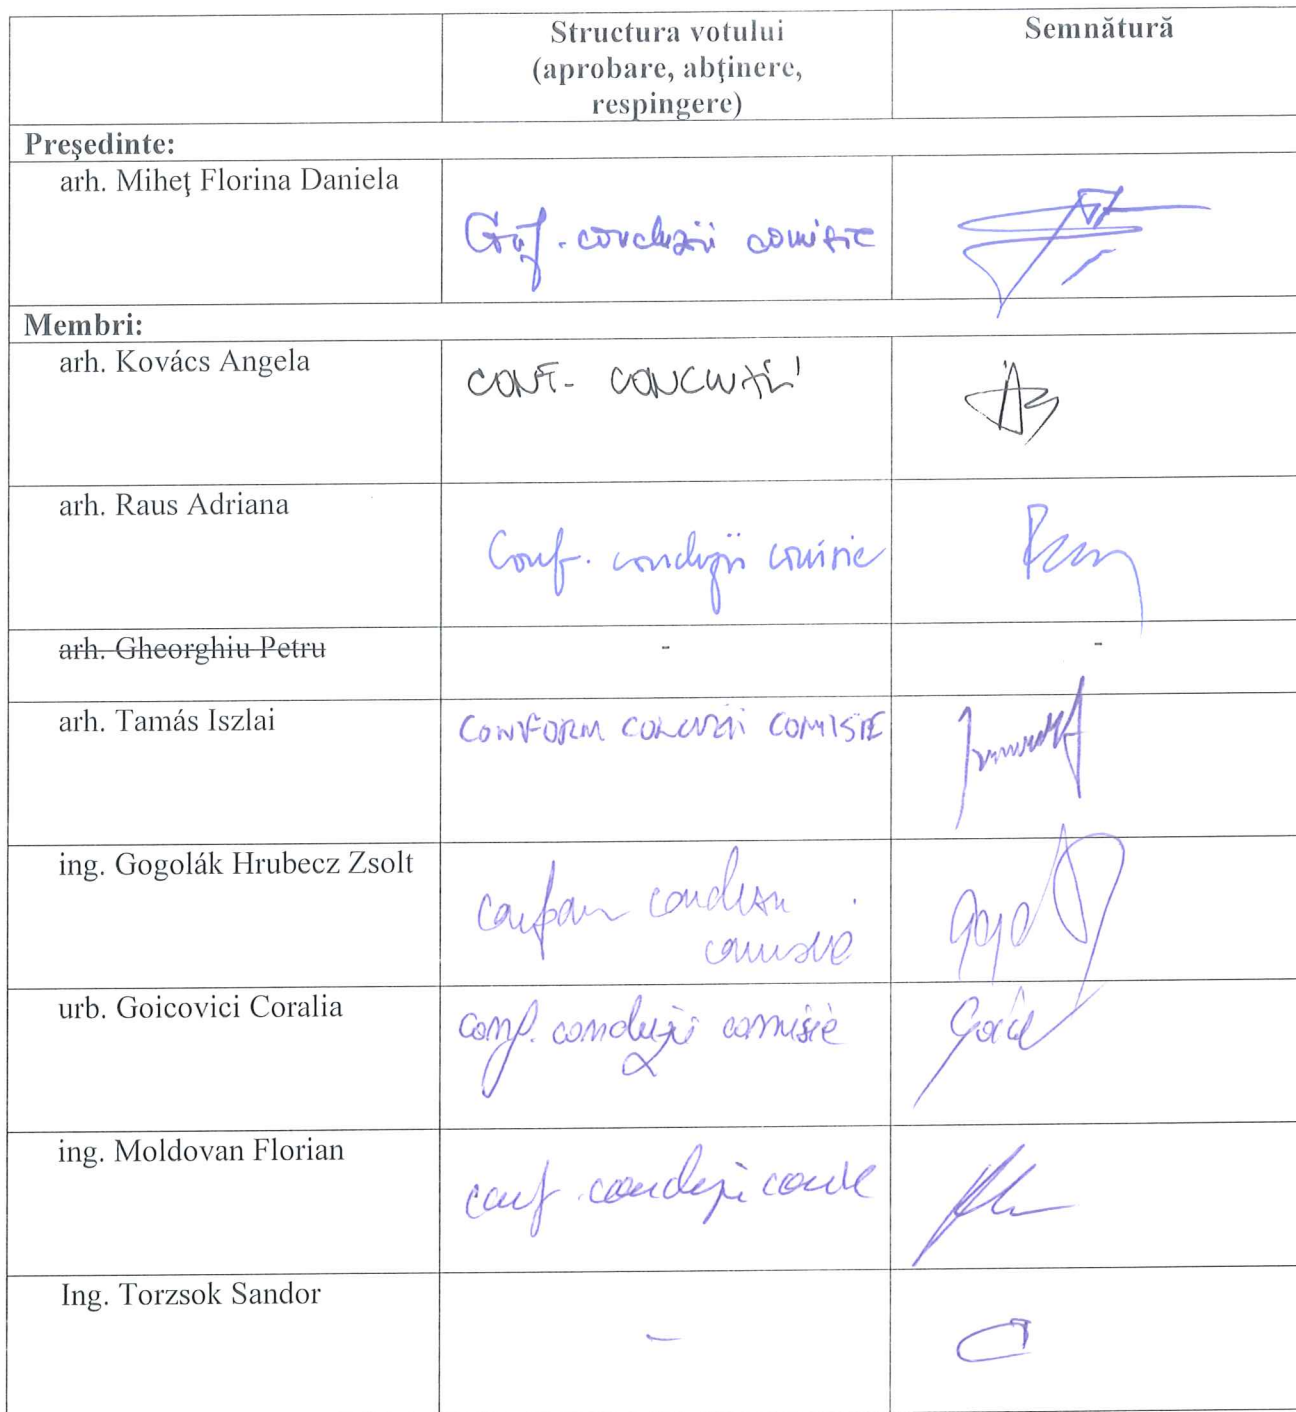 Structura votului
(aprobare, abţinere,
respingere)
Semnătură
Preşedinte:
arh. Miheţ Florina Daniela
Conf. concluzii comisie
Membri:
arh. Kovács Angela
CONF. CONCLUZII
arh. Raus Adriana
Conf. concluzii comisie
arh. Gheorghiu Petru
-
-
arh. Tamás Iszlai
CONFORM CONCLUZII COMISIE
ing. Gogolák Hrubecz Zsolt
conform concluzii
comisie
urb. Goicovici Coralia
conf. concluzii comisie
ing. Moldovan Florian
conf. concluzii
Ing. Torzsok Sandor
-